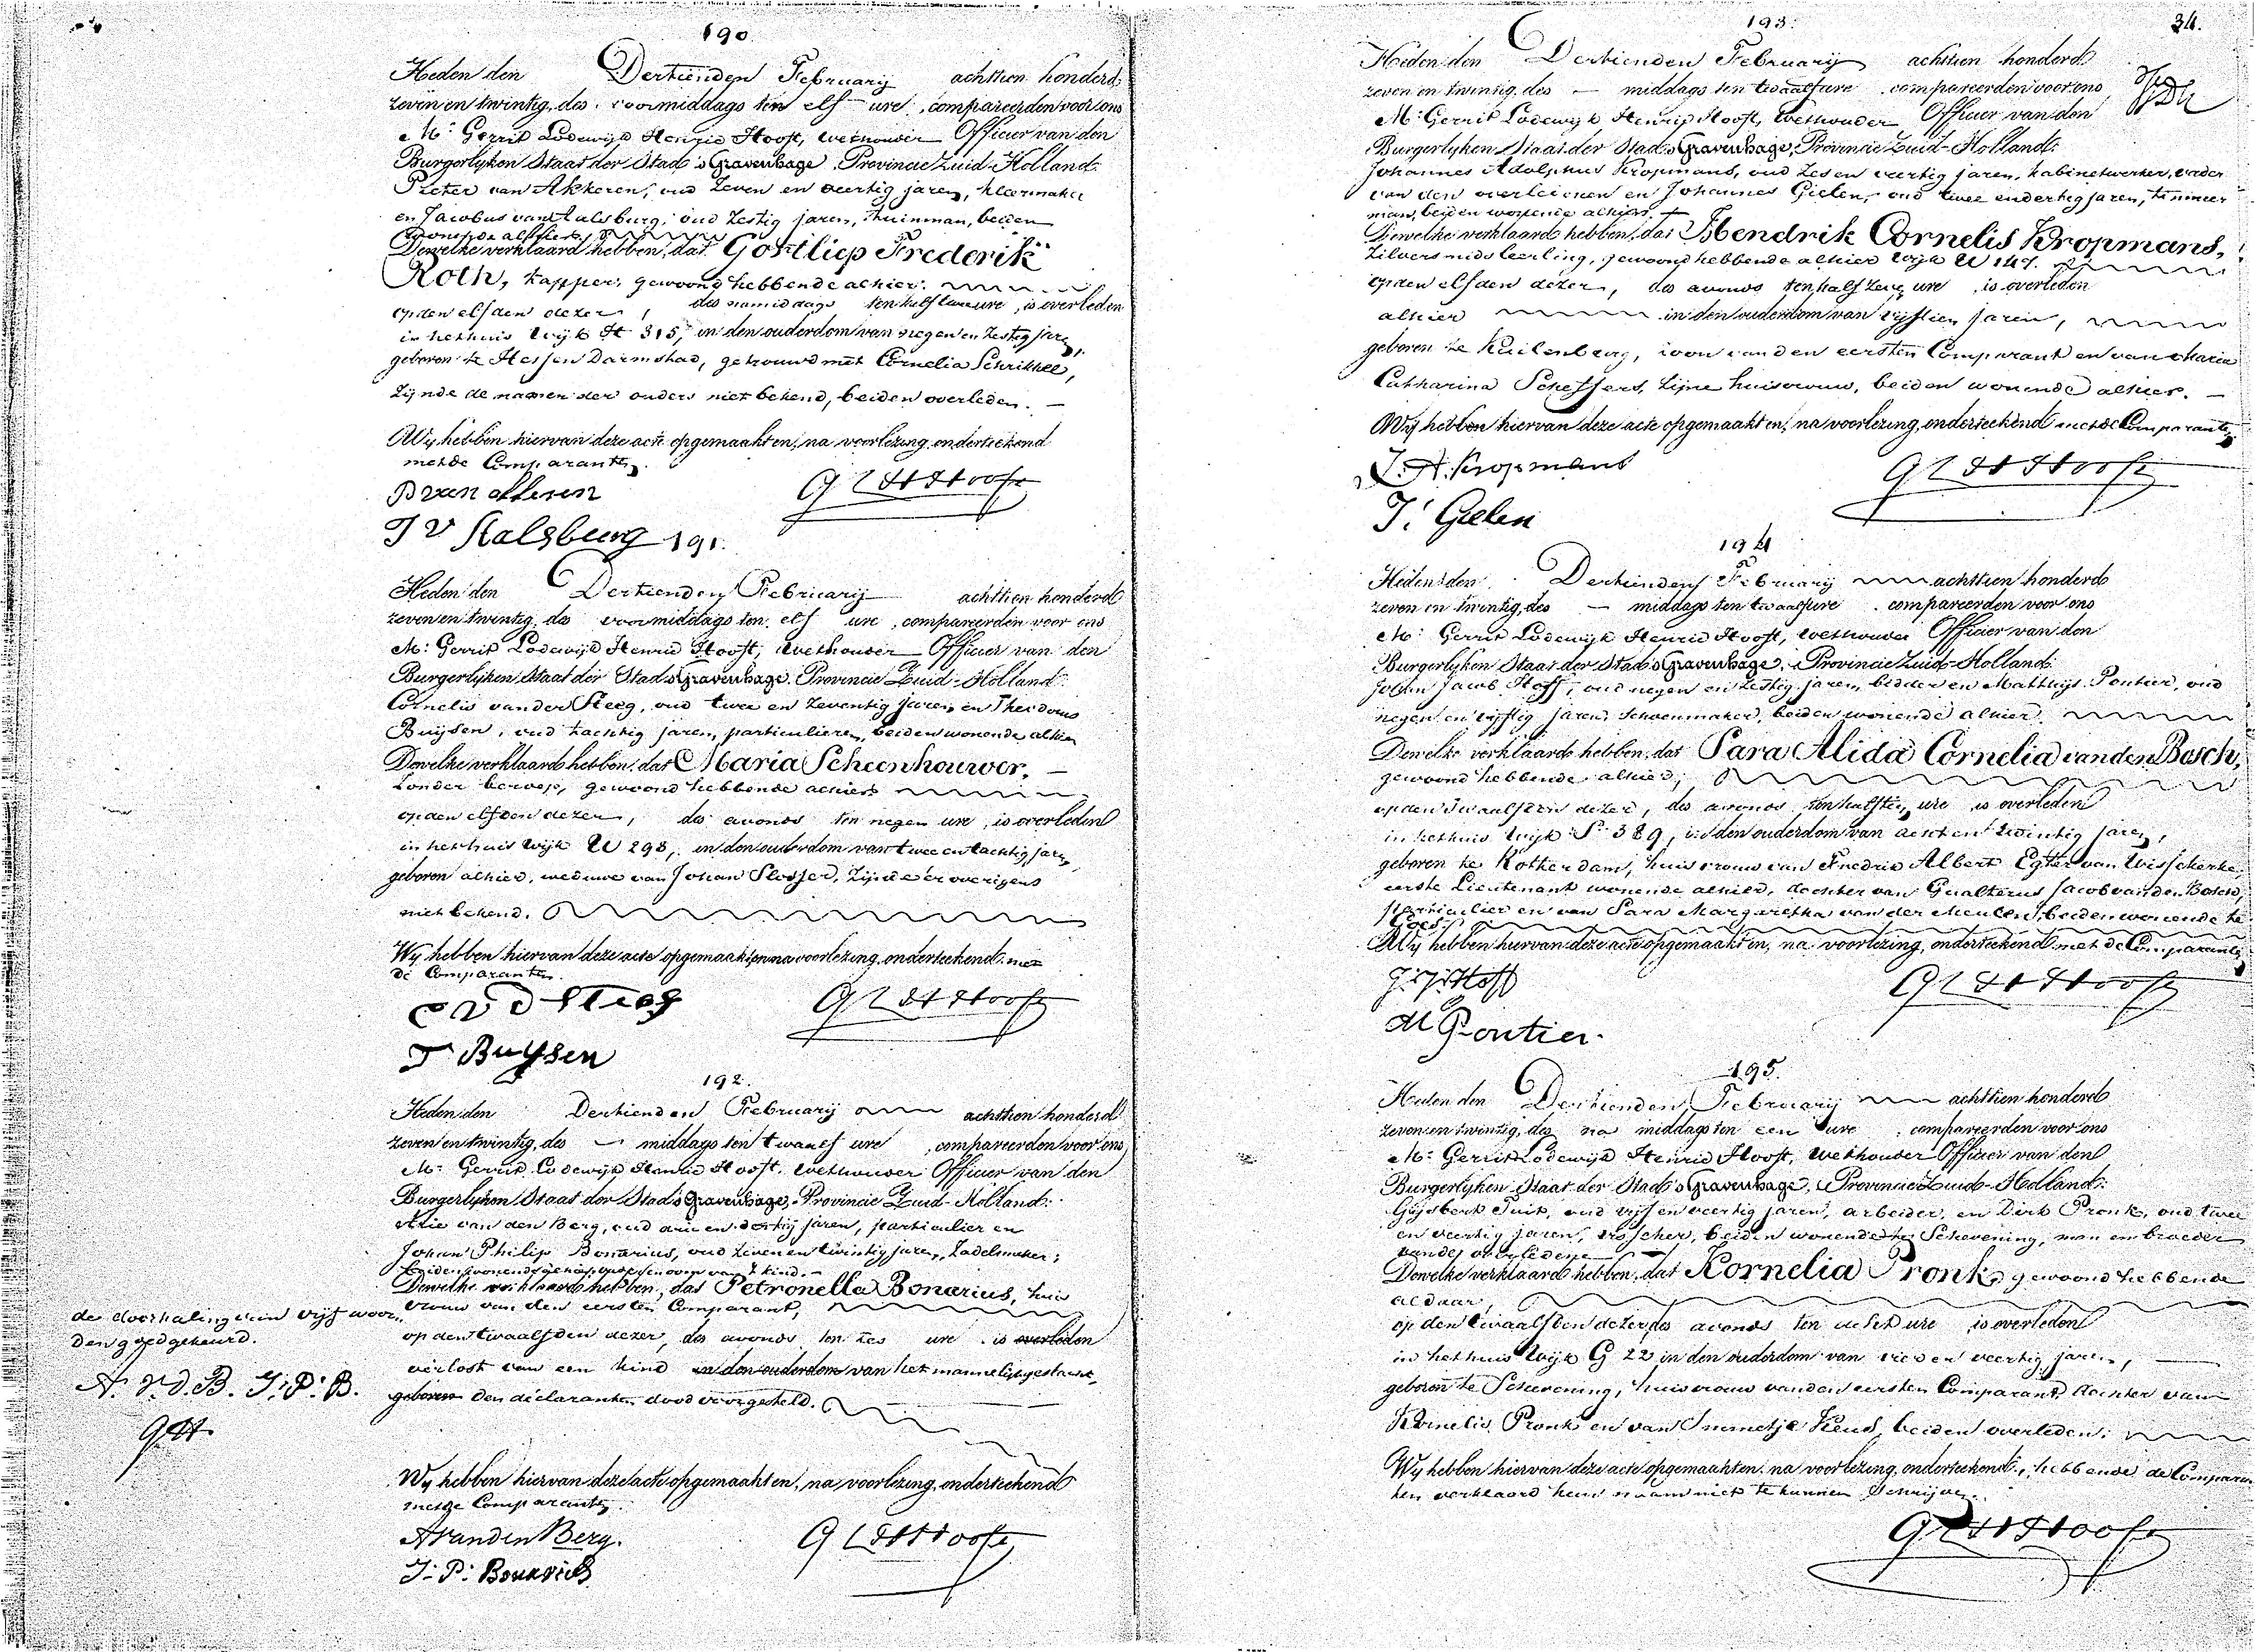 190.
Heden den Dertienden Februarij achttien honderd
zeven en twintig, des voormiddags ten elf ure, compareerden voor ons
Mr. Gerrit Lodewijk Henrie Hooft, wethouder Officier van den
Burgerlyken Staat der Stad 's Gravenhage, Provincie Zuid-Holland:
Pieter van Akkeren, oud zeven en veertig jaren, kleermaker
en Jacobus van Aalsburg, oud zestig jaren, tuinman, beiden
wonende alhier,
Dewelke verklaard hebben, dat Gottliep Frederik
Roth, kapper, gewoond hebbende alhier.
op den elfden dezer, des namiddags ten half twee ure, is overleden
in het huis Wijk H 315, in den ouderdom van negen en zestig jaren,
geboren te Hessen Darmstad, getrouwd met Cornelia Schrikkel,
zijnde de namen der ouders niet bekend, beiden overleden.
Wy hebben hiervan deze acte opgemaakt en, na voorlezing, onderteekend
met de Comparanten.
P van Akkeren
J V Aalsburg
G L H Hooft
191.
Heden den Dertienden Februarij achttien honderd
zeven en twintig, des voormiddags ten elf ure, compareerden voor ons
Mr. Gerrit Lodewijk Henrie Hooft, wethouder Officier van den
Burgerlyken Staat der Stad 's Gravenhage, Provincie Zuid-Holland:
Cornelis van der Steeg, oud twee en zeventig jaren, en Theodorus
Buijsen, oud tachtig jaren, particulieren, beiden wonende alhier
Dewelke verklaard hebben, dat Maria Scheenhouwer,
zonder beroep, gewoond hebbende alhier
op den elfden dezer, des avonds ten negen ure, is overleden
in het huis Wijk W 298, in den ouderdom van twee en tachtig jaren,
geboren alhier, weduwe van Johan Slosser, zijnde er overigens
niet bekend.
Wy hebben hiervan deze acte opgemaakt en, na voorlezing, onderteekend met
de Comparanten.
C V D Steeg
T Buijsen
G L H Hooft
192.
Heden den Dertienden Februarij achttien honderd
zeven en twintig, des middags ten twaalf ure, compareerden voor ons
Mr. Gerrit Lodewijk Henrie Hooft, wethouder Officier van den
Burgerlyken Staat der Stad 's Gravenhage, Provincie Zuid-Holland:
Arie van den Berg, oud drie en dertig jaren, particulier en
Johan Philip Bonarius, oud zeven en twintig jaren, zadelmaker;
beiden wonende alhier, vader en oom van 't kind.
Dewelke verklaard hebben, dat Petronella Bonarius, huis
vrouw van den eersten Comparant,
op den twaalfden dezer, des avonds ten zes ure is overleden
verlost van een kind in den ouderdom van het mannelijk geslacht,
geboren den declaranten dood voorgesteld.
de doorhaling van vijf woor
den goedgekeurd.
A. v. d. B. J: P: B.
GH
Wy hebben hiervan deze acte opgemaakt en, na voorlezing, onderteekend
met de Comparanten.
A van den Berg.
J: P: Bonarius
G L H Hooft
34.
193.
Heden den Dertienden Februarij achttien honderd
zeven en twintig, des middags ten twaalf ure compareerden voor ons
Mr. Gerrit Lodewijk Henrie Hooft, wethouder Officier van den
Burgerlyken Staat der Stad 's Gravenhage, Provincie Zuid-Holland:
Johannes Adolphus Kropmans, oud zes en veertig jaren, kabinetwerker, vader
van den overledenen en Johannes Gielen, oud twee en dertig jaren, timmer
man, beiden wonende alhier.
Dewelke verklaard hebben, dat Hendrik Cornelis Kropmans,
zilversmids leerling, gewoond hebbende alhier Wijk W 147.
op den elfden dezer, des avonds ten half zeven ure is overleden
alhier in den ouderdom van vijftien jaren,
geboren te Kuilenburg, zoon van den eersten Comparant en van Maria
Catharina Scheffers, zijne huisvrouw, beiden wonende alhier.
Wy hebben hiervan deze acte opgemaakt en, na voorlezing, onderteekend met de Comparanten
J. A. Kropmans
J: Gielen
G L H Hooft
194
Heden den Dertienden Februarij achttien honderd
zeven en twintig, des middags ten twaalf ure compareerden voor ons
Mr. Gerrit Lodewijk Henrie Hooft, wethouder Officier van den
Burgerlyken Staat der Stad 's Gravenhage, Provincie Zuid-Holland:
Johan Jacob Hoff, oud negen en zestig jaren, bidder en Matthijs Pontier, oud
negen en vijftig jaren, schoenmaker, beiden wonende alhier.
Dewelke verklaard hebben, dat Sara Alida Cornelia van den Bosch,
gewoond hebbende alhier,
op den twaalfden dezer, des avonds ten half tien ure is overleden
in het huis Wijk S 389, in den ouderdom van acht en twintig jaren,
geboren te Rotterdam, huisvrouw van Fredrik Albert Egter van Wisserkerke,
eerste Lieutenant wonende alhier, dochter van Gualterus Jacob van den Bosch,
particulier en van Sara Margaretha van der Meulen, beiden wonende te
Goes.
Wy hebben hiervan deze acte opgemaakt en, na voorlezing, onderteekend met de Comparanten
J: J: Hoff
M Pontier.
G L H Hooft
195.
Heden den Dertienden Februarij achttien honderd
zeven en twintig, des na middags ten een ure compareerden voor ons
Mr. Gerrit Lodewijk Henrie Hooft, wethouder Officier van den
Burgerlyken Staat der Stad 's Gravenhage, Provincie Zuid-Holland:
Gijsbert Tuit, oud vijf en veertig jaren, arbeider, en Dirk Pronk, oud twee
en veertig jaren, visscher, beiden wonende te Schevening, man en broeder
van de overledene
Dewelke verklaard hebben, dat Kornelia Pronk, gewoond hebbende
aldaar,
op den twaalfden dezer, des avonds ten acht ure is overleden
in het huis Wijk G 22 in den ouderdom van vier en veertig jaren,
geboren te Schevening, huisvrouw van den eersten Comparant, dochter van
Kornelis Pronk en van Immetje Keus, beiden overleden.
Wy hebben hiervan deze acte opgemaakt en, na voorlezing, onderteekend, hebbende de Comparan
ten verklaard hun naam niet te kunnen schrijven.
G L H Hooft